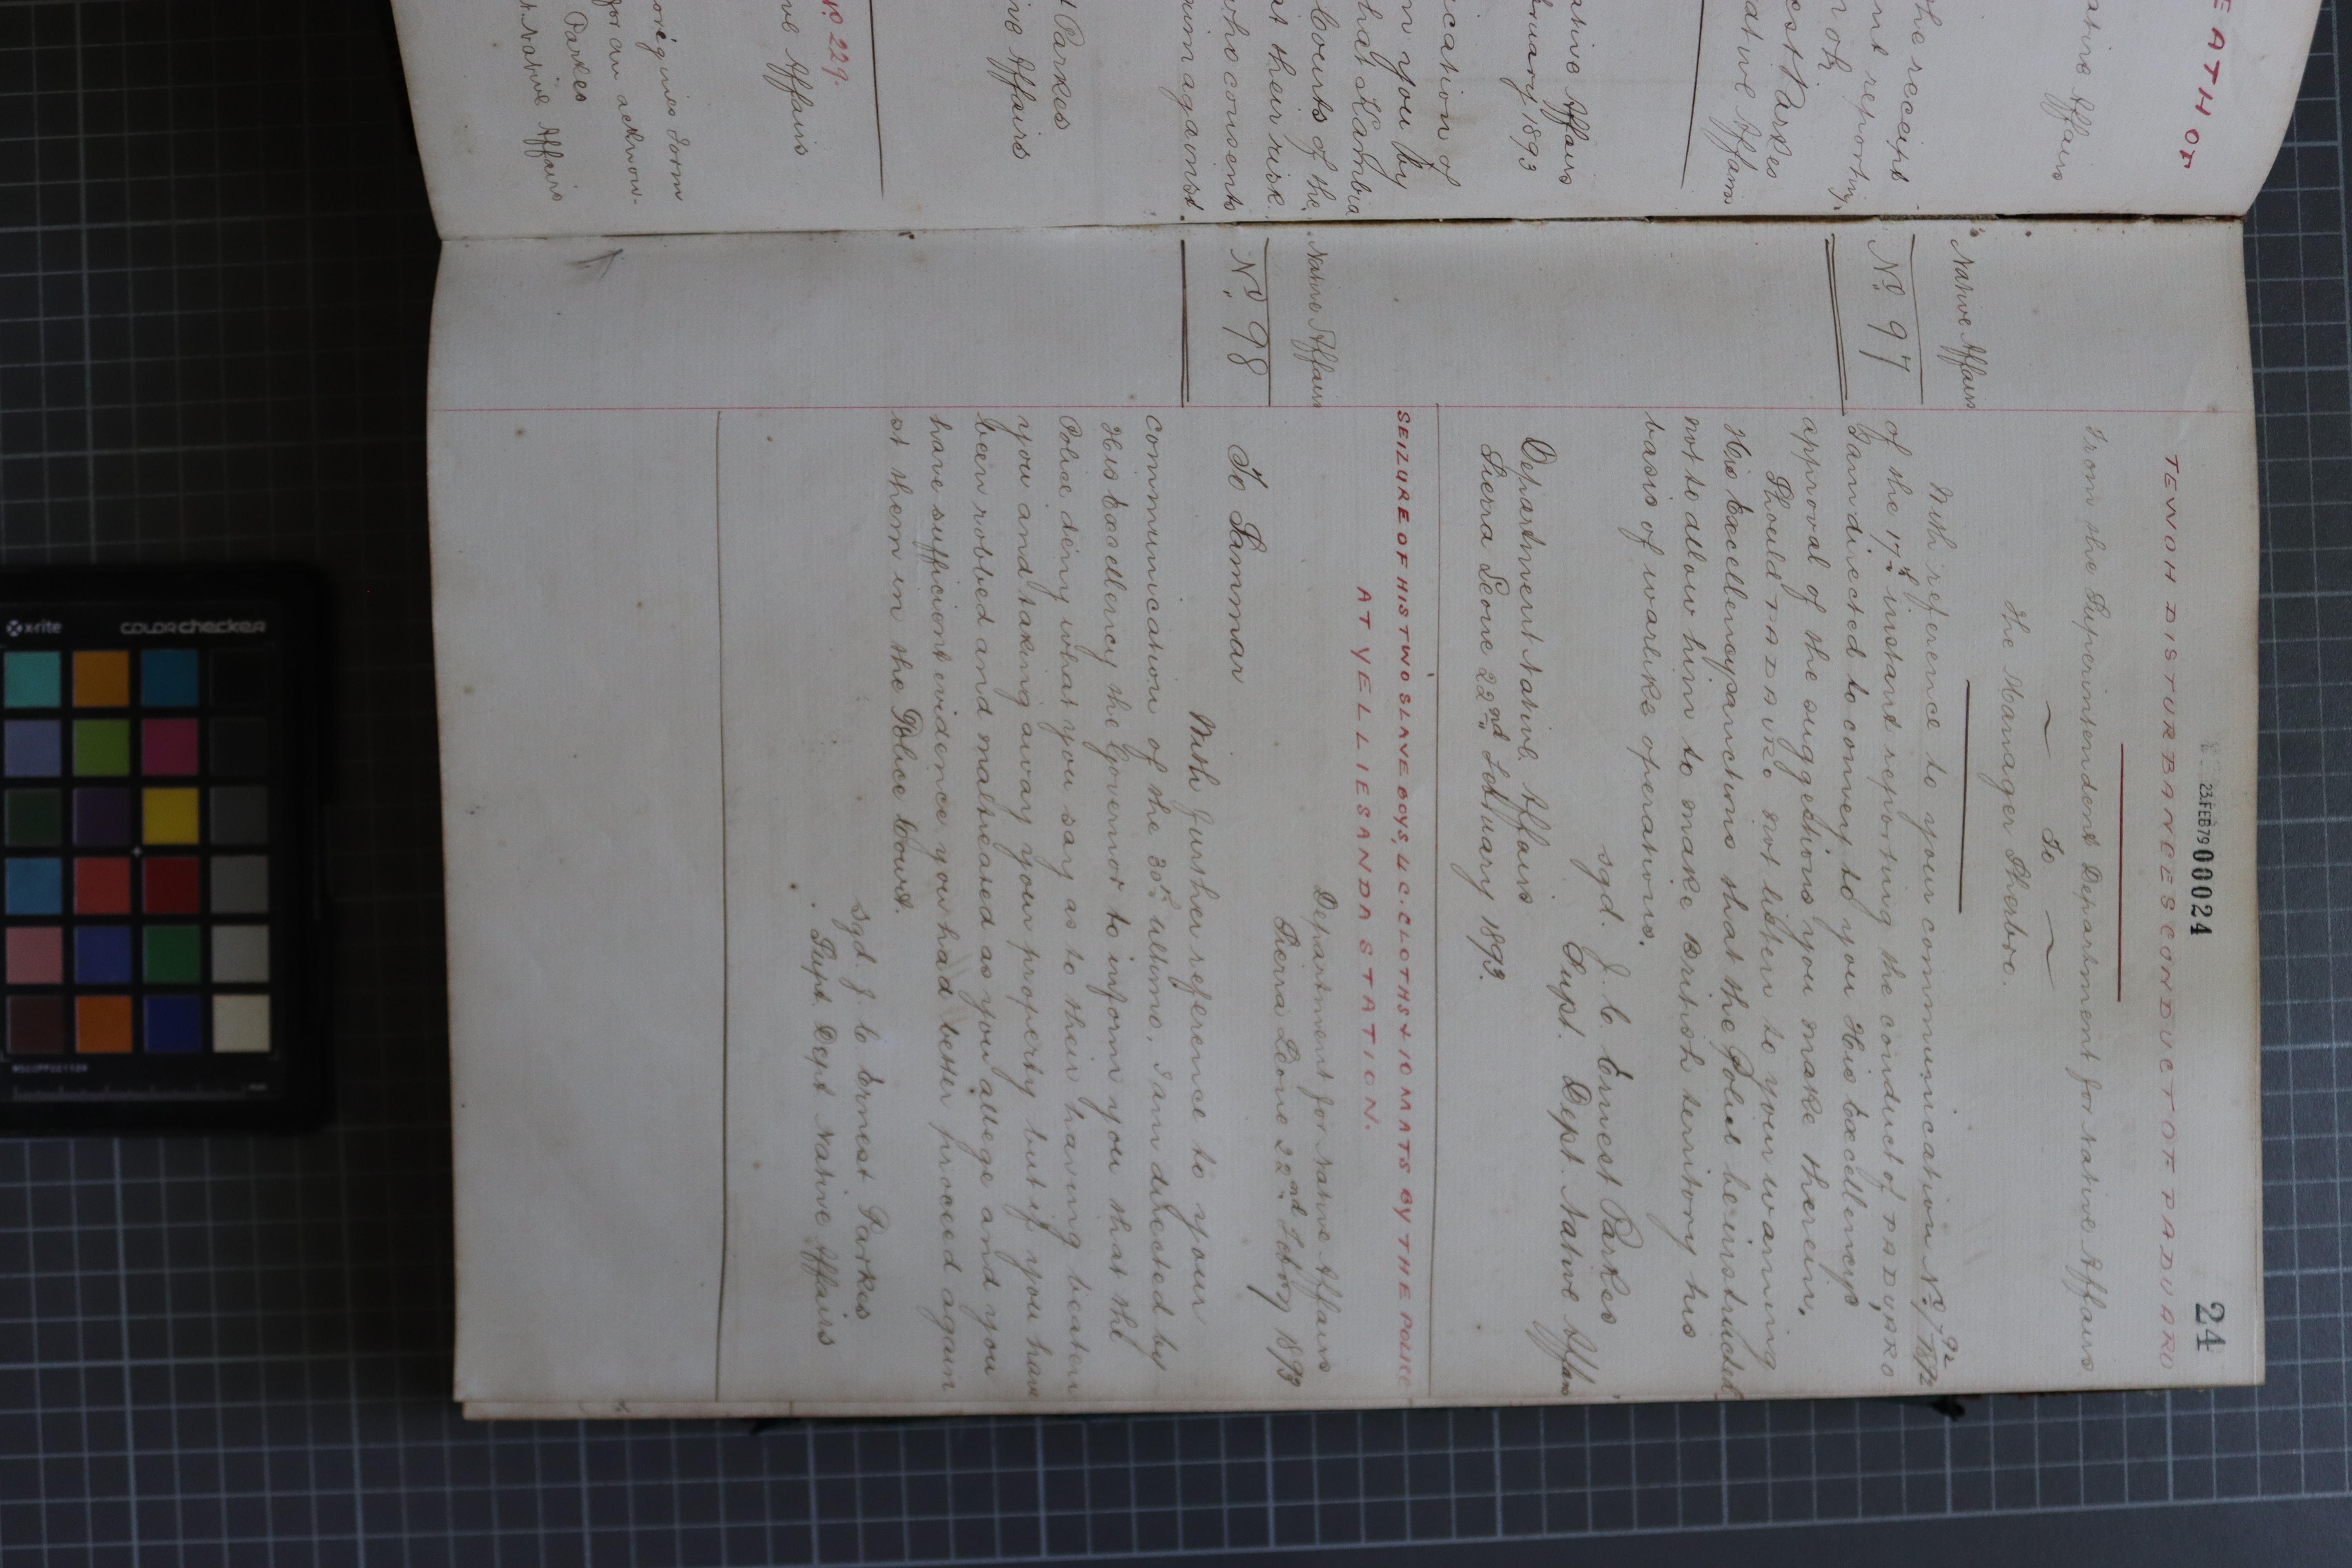 EATH OF
ative Affairs
the receipt
nt reporting
noh.
est Parkes
ative Affairs
ative Affairs
bruary 1893
ication of
m you by
that Kambia
Courts of the
at their risk.
who consents
aim against
t Parkes
ive Affairs
No 229.
ve Affairs
for an acknow-
Parkes
t. Native Affairs
23.FEB79 00024
24
TEWOH DISTURBANCES CONDUCT OF PADUARO
From the Superintendent Department for Native Affairs
To
The Manager Sherbro.
Native Affairs
No 97
With reference to your communication No
of the 17th instant reporting the conduct of PADUARO
I am directed to convey to you His Excellency's
approval of the suggestions you make therein.
Should PADUARO not listen to your warning
His Excellency sanctions that the Police be instructed
not to allow him to make British territory his
basis of warlike operations.
sgd. J. C. Ernest Parkes
Supt. Dept. Native Affairs
Department Native Affairs
Sierra Leone 22nd February 1893.
SEIZURE OF HIS TWO SLAVE BOYS, 4 C. CLOTHS & 10 MATS BY THE POLICE
AT YELLIESANDA STATION.
Native Affairs
No 98
Department for Native Affairs
Sierra Leone 22nd Febry 1893
To Lammar
With further reference to your
communication of the 30th ultimo, I am directed by
His Excellency the Governor to inform you that the
Police deny what you say as to their having beaten
you and taking away your property but if you have
been robbed and maltreated as you allege and you
have sufficient evidence you had better proceed again
st them in the Police Court.
sgd. J. C. Ernest Parkes
Supt. Dept Native Affairs
x-rite
colorchecker
mm